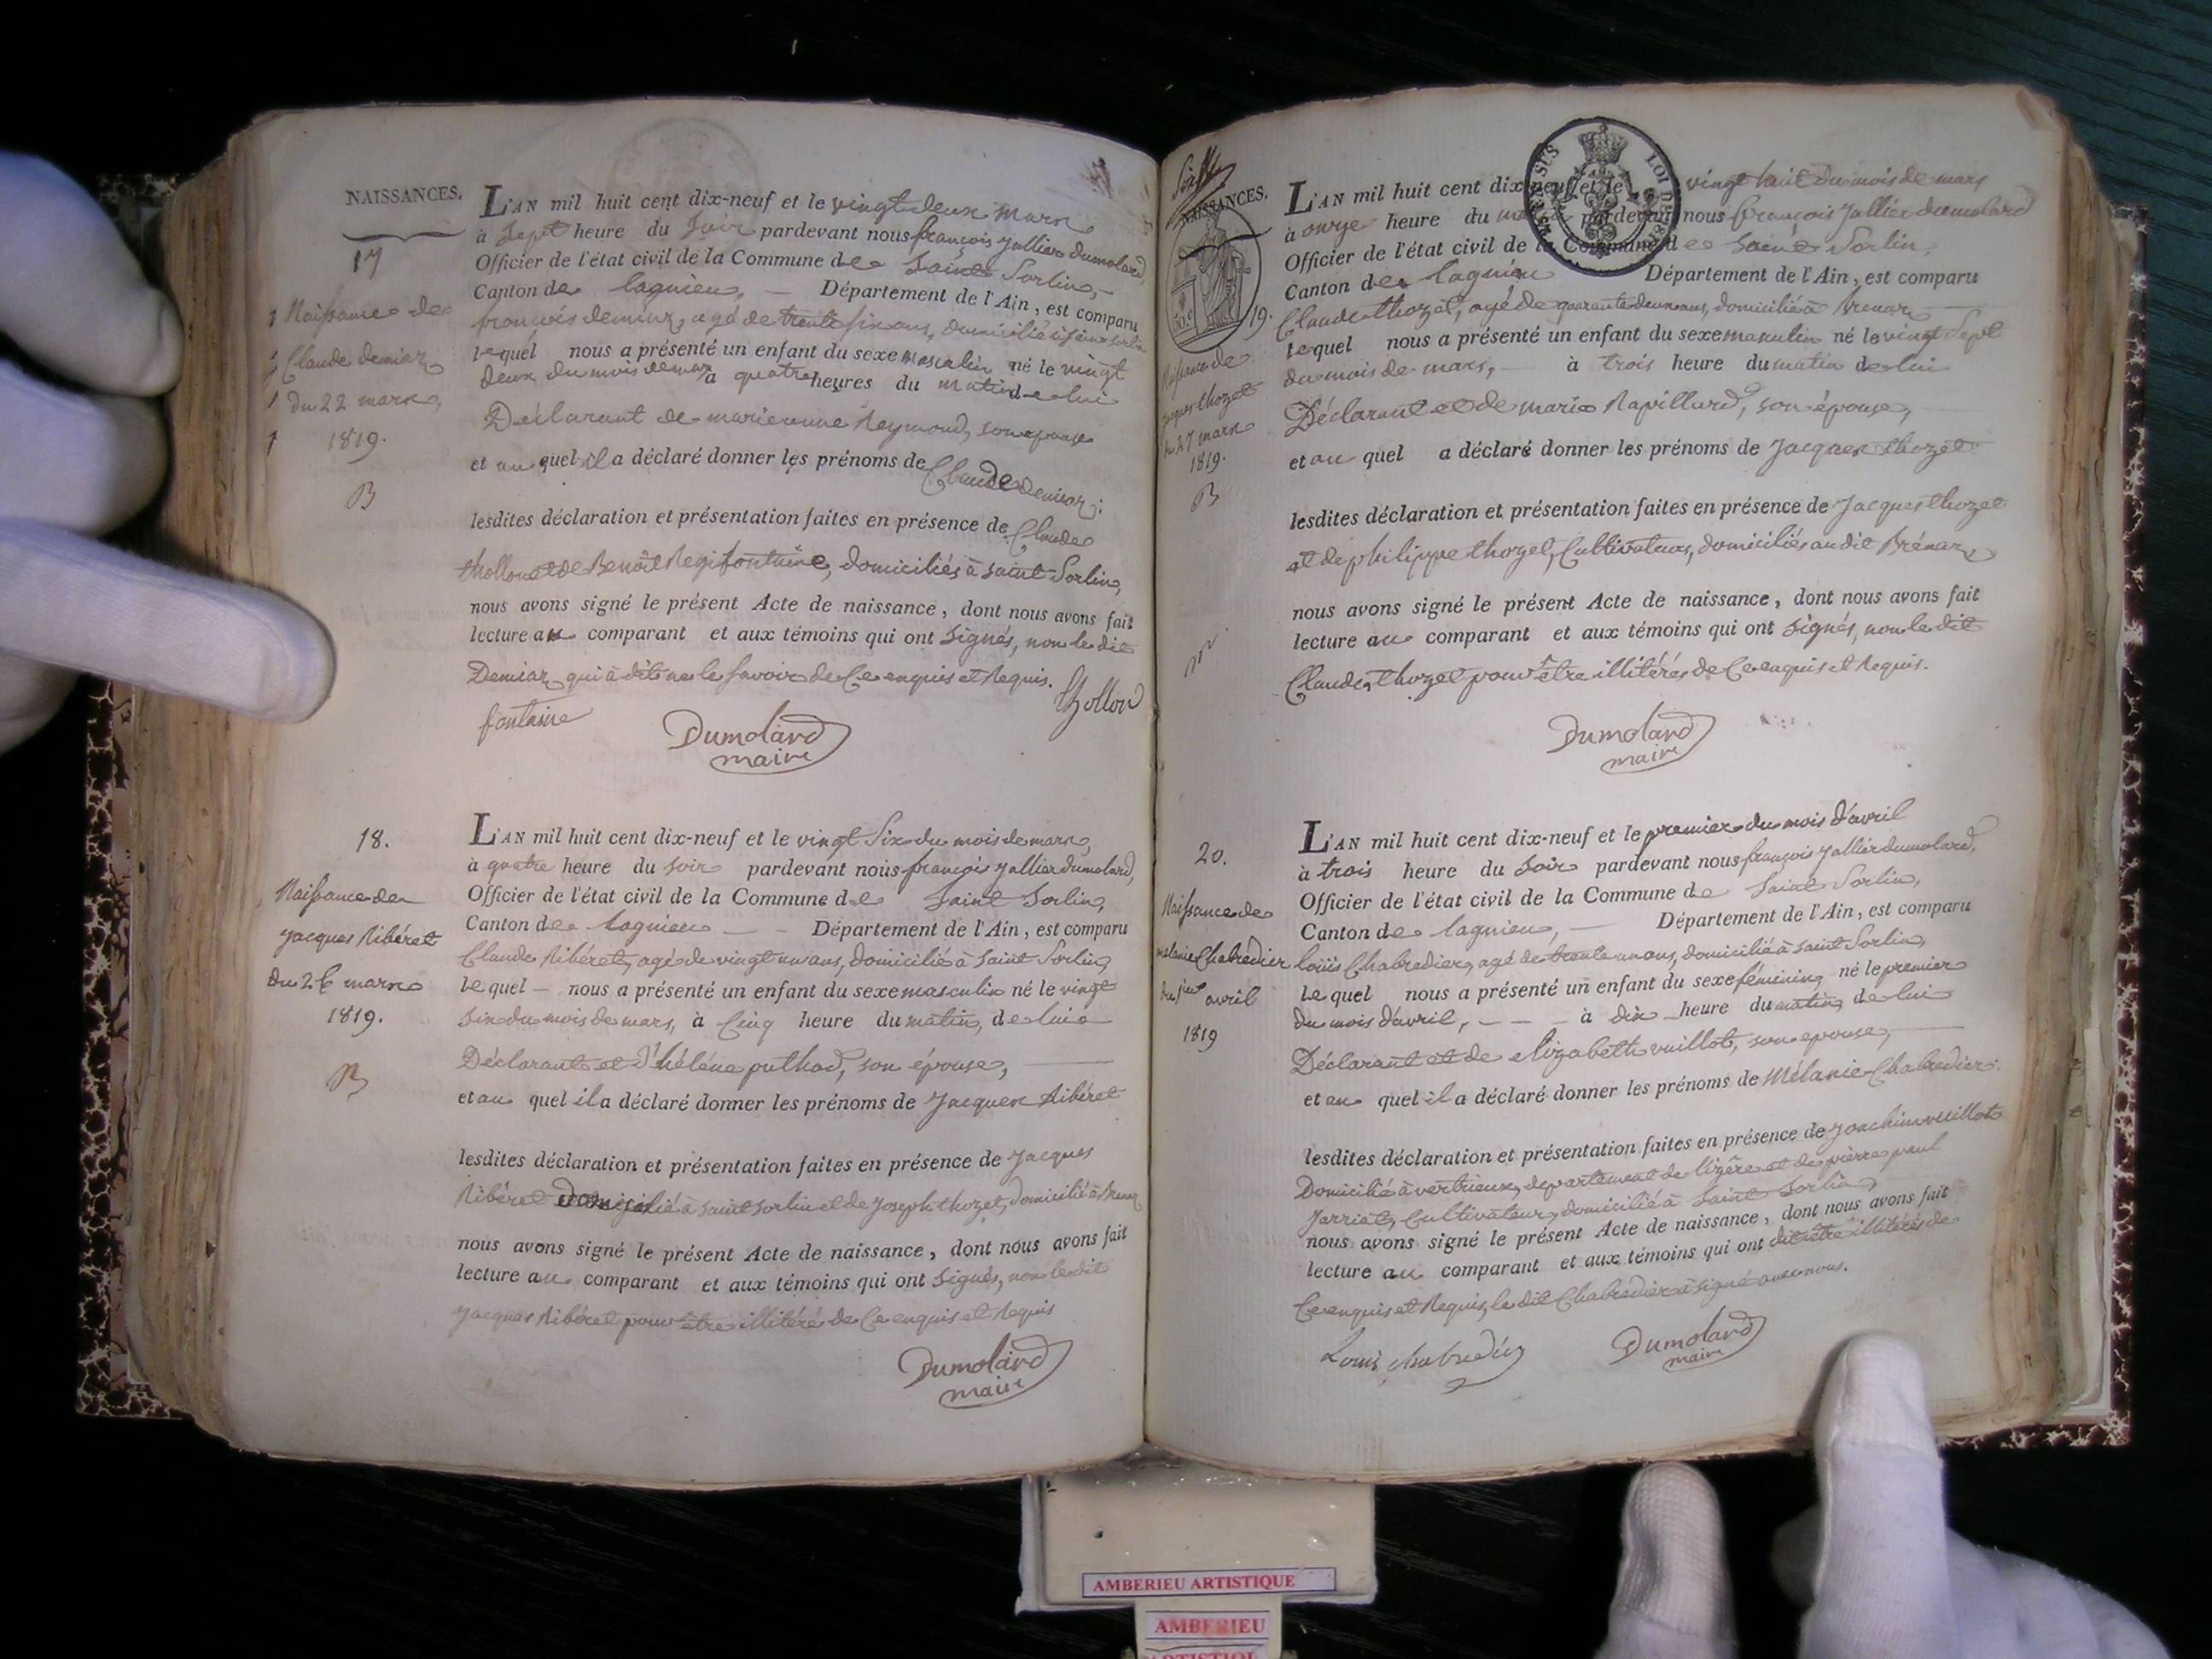 NAISSANCES.
17
Naissance de
Claude demiaz
du 22 mars
1819.
L'AN mil huit cent dix-neuf et le vingt deux mars
à Sept heure du Soir pardevant nous françois jallier dumolard
Officier de l'état civil de la Commune de Saint Sorlin,
Canton de lagnieu, Département de l'Ain, est comparu
françois demiaz, agé de trente six ans, domicilié à saint sorlin
lequel nous a présenté un enfant du sexe masculin né le vingt
deux du mois de mars à quatre heures du matin de lui
Déclarant de marieanne Reymond, son epouse
et au quel il a déclaré donner les prénoms de Claude demiaz.
lesdites déclaration et présentation faites en présence de Claude
thollon et de Benoît Fontaine, domiciliés à saint Sorlin,
nous avons signé le présent Acte de naissance, dont nous avons fait
lecture au comparant et aux témoins qui ont signés, non le dit
Demiaz qui à dit ne le savoir de ce enquis et Requis.
fontaine Dumolard Thollon
maire
18.
Naissance de
jacques Ribéret
du 26 mars
1819.
L'AN mil huit cent dix-neuf et le vingt Six du mois de mars,
à quatre heure du soir pardevant nous françois jallier dumolard,
Officier de l'état civil de la Commune de Saint Sorlin,
Canton de lagnieu Département de l'Ain, est comparu
Claude Ribéret, agé de vingt un ans, domicilié à Saint Sorlin,
Le quel nous a présenté un enfant du sexe masculin né le vingt
six du mois de mars, à Cinq heure du matin, de lui
Déclarant et d'héléne puthod, son épouse,
et au quel il a déclaré donner les prénoms de jacques Ribéret
lesdites déclaration et présentation faites en présence de jacques
Ribéret domicilié à saint sorlin et de joseph thozet, domicilié à
nous avons signé le présent Acte de naissance, dont nous avons fait
lecture au comparant et aux témoins qui ont signés, non le dit
jacques Ribéret pour être illitéré de Ce enquis et Requis
Dumolard
maire
NAISSANCES.
19.
Naissance de
jacques thozet
du 27 mars
1819.
L'AN mil huit cent dix-neuf et le vingt huit du mois de mars
à onze heure du pardevant nous françois jallier dumolard
Officier de l'état civil de la Commune de Saint Sorlin,
Canton de lagnieu Département de l'Ain, est comparu
Claude thozet, agé de quarante deux ans, domicilié à
Le quel nous a présenté un enfant du sexe masculin né le vingt Sept
du mois de mars, à trois heure du matin de lui
Déclarant et de marie Rapillard, son épouse,
et au quel a déclaré donner les prénoms de jacques thozet
lesdites déclaration et présentation faites en présence de jacques thozet
et de philippe thozet, Cultivateurs, domiciliés au dit
nous avons signé le présent Acte de naissance, dont nous avons fait
lecture au comparant et aux témoins qui ont signés, non le dit
Claude thozet pour être illitérés de Ce enquis et Requis.
Dumolard
maire
20.
Naissance de
mélanie Chabredier
du 1er avril
1819
L'AN mil huit cent dix-neuf et le premier du mois d'avril
à trois heure du soir pardevant nous françois jallier dumolard,
Officier de l'état civil de la Commune de Saint Sorlin,
Canton de lagnieu, Département de l'Ain, est comparu
loüis Chabredier, agé de trente un ans, domicilié à saint Sorlin,
Le quel nous a présenté un enfant du sexe féminin né le premier
du mois d'avril, à dix heure du matin, de lui
Déclarant et de elizabeth vuillot, son epouse,
et au quel il a déclaré donner les prénoms de Mélanie Chabredier.
lesdites déclaration et présentation faites en présence de joachim vuillot
Domicilié à vertrieux, departement de l'izêre et de pierre paul
jarriat, Cultivateur, domicilié à Saint Sorlin,
nous avons signé le présent Acte de naissance, dont nous avons fait
lecture au comparant et aux témoins qui ont dit être illitérés de
Ce enquis et Requis, le dit Chabredier à signé avec nous.
Louis chabredier Dumolard
maire
AMBERIEU ARTISTIQUE
AMBERIEU
ARTISTIQUE